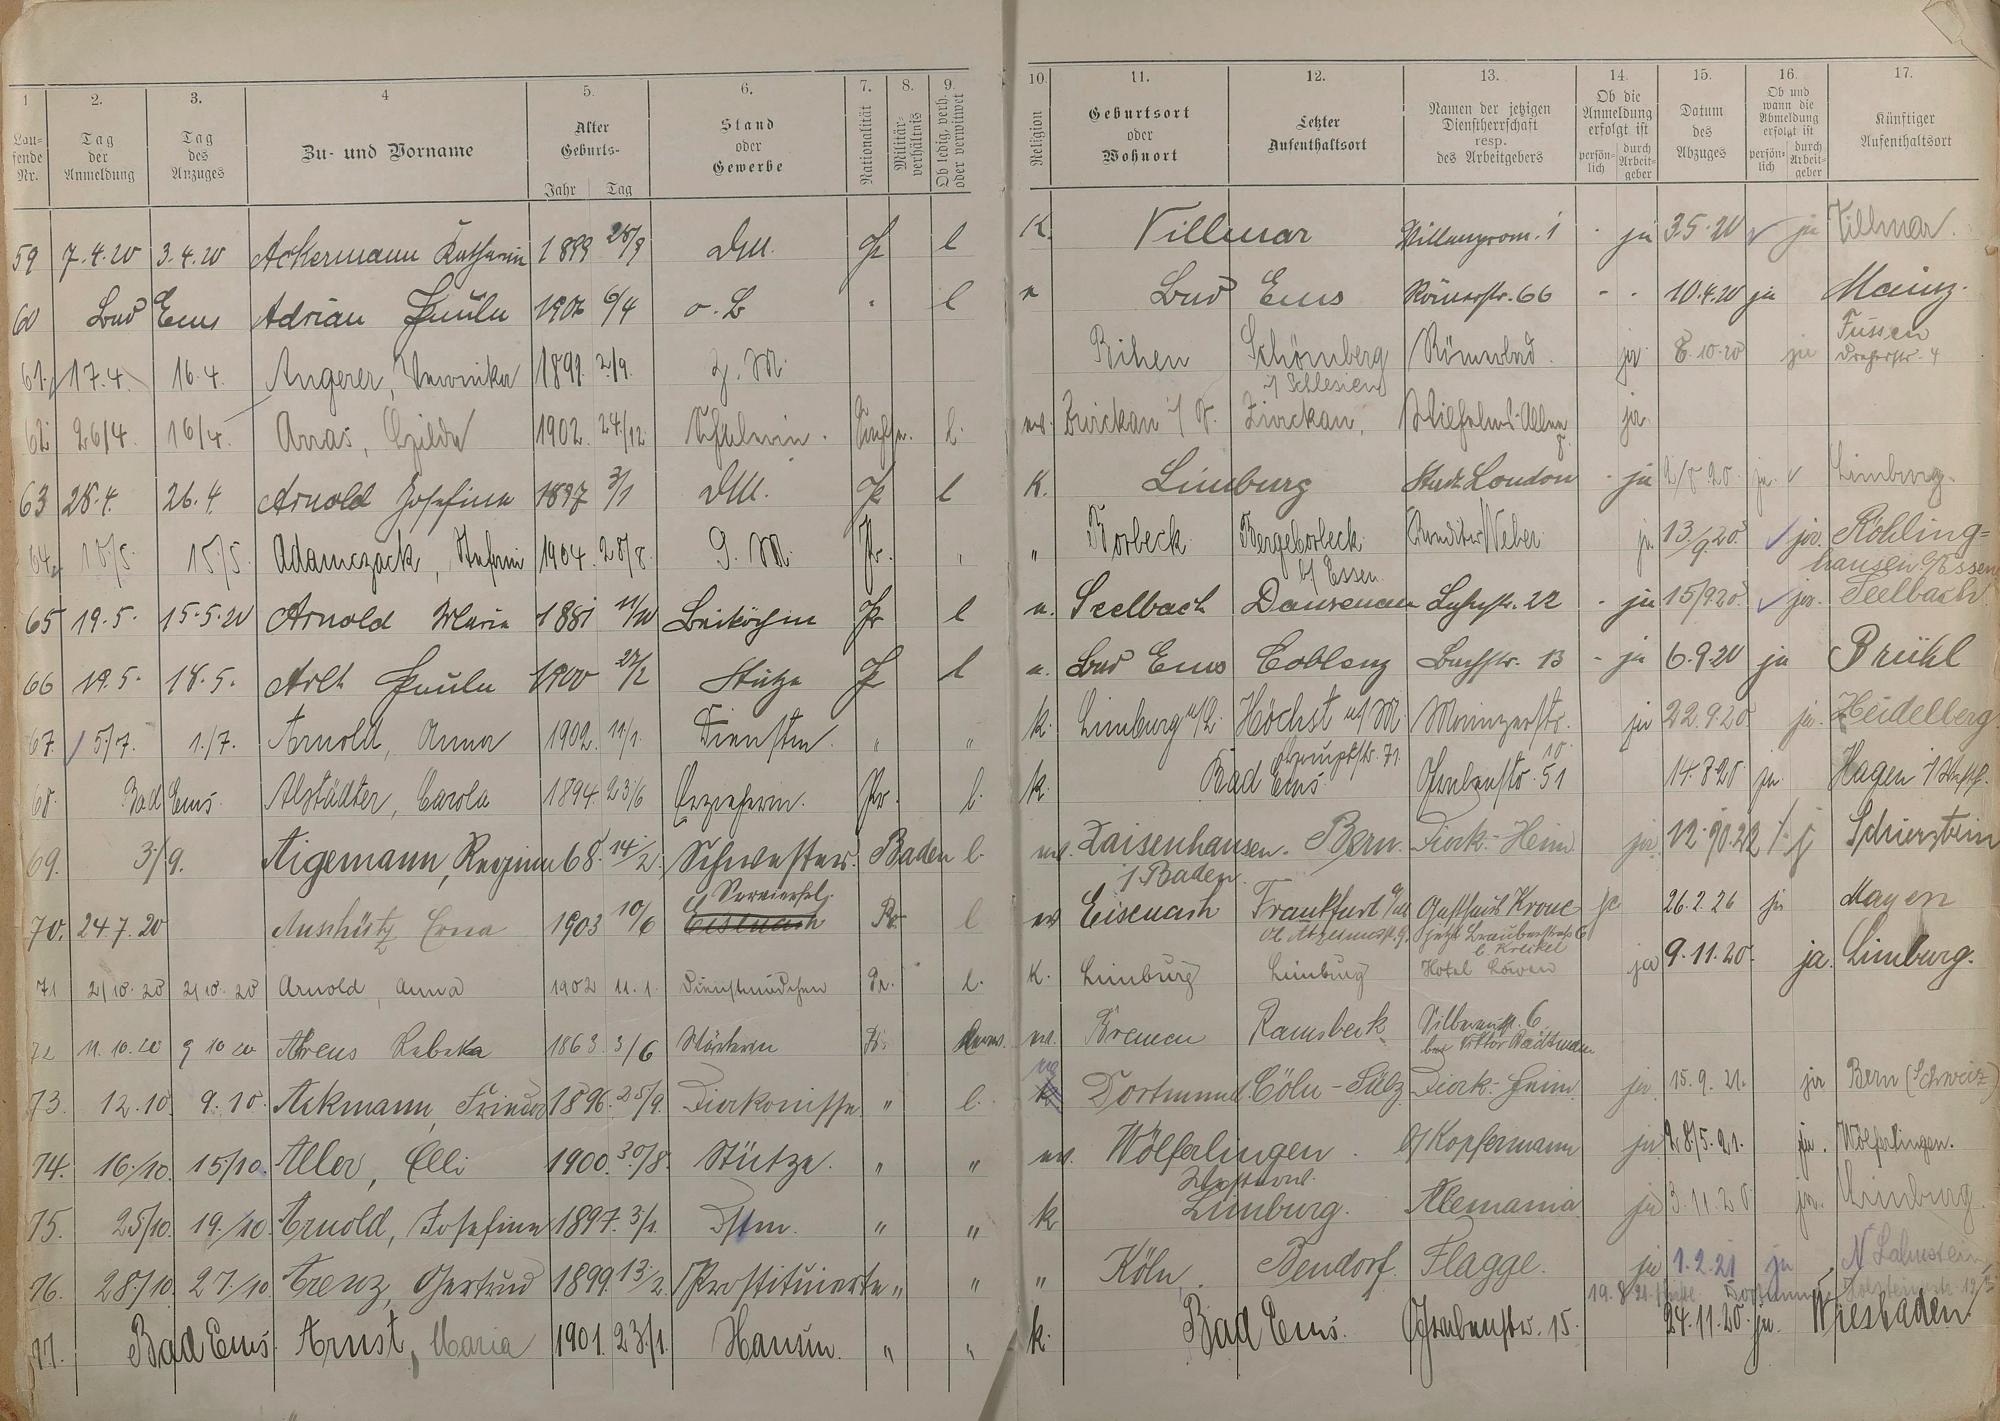 1 2. 3. 4 5. 6. 7. 8. 9. 10. 11. 12. 13. 14. 15. 16. 17.
Lau-
fende
Nr.
Tag
der
Anmeldung
Tag
des
Anzuges
Zu- und Vorname
Alter
Geburts-
Jahr Tag
Stand
oder
Gewerbe
Nationalität
Militär-
verhältnis
Ob ledig, verh.
oder verwitwet
Religion
Geburtsort
oder
Wohnort
Letzter
Aufenthaltsort
Namen der jetzigen
Dienstherrschaft
resp.
des Arbeitgebers
Ob die
Anmeldung
erfolgt ist
persön-
lich
durch
Arbeit-
geber
Datum
des
Abzuges
Ob und
wann die
Abmeldung
erfolgt ist
persön-
lich
durch
Arbeit-
geber
Künftiger
Aufenthaltsort
59 7.4.20 3.4.20 Ackermann Katharin 1899 28/9 DM. Pr l K. Villmar Villenprom. 1 - ja 3.5.20 ja Villmar.
60 Bad Ems Adrian Paula 6/4 o. B " l Bad Ems Römerstr. 66 - - 10.4.20 ja Mainz.
61. 17.4. 16.4. Angerer, Veronika 1899. 2/9. Z. M. Schömberg Römerbad. ja 8.10.20 ja Füssen
i/ Schlesien
62. 26/4. 16/4. Arras, Hilde 1902. 24/12 Schülerin. l. ev. Zwickau i/ Zwickau. Wilhelms-Allee ja.
63 28.4. 26.4. Arnold Josefine 1897 3/1 DM. Pr l K. Limburg Stadt London - ja ja. Limburg.
64. 15/5. Adamczack, 1904. 28/8. D. M. Pr. " " Borbeck Bergeborbeck Konditor Weber ja 13/9.20. ja. Röhling-
b/ Essen. hausen b/Essen
65 19.5. 15.5.20 Arnold Maria 1881 11/10 Beiköchin Pr l Seelbach Dausenau Lahnstr. 22 - ja 15/9.20. ja. Seelbach
66 19.5. 18.5. Arlt Paula 1900 27/2 Stütze Pr l Bad Ems Coblenz Bachstr. 13 - ja 6.9.20 ja Brühl
67. 5/7. 1./7. Arnold, Anna 1902. 11/1. Dienstm. " " k. Limburg a/L. Höchst a/M Mainzerstr. ja 22.9.20 ja. Heidelberg
10.
68. Bad Ems. Alstädter, Carola 1894. 23/6 Erzieherin. Pr. l. k. Bad Ems. Grabenstr. 51 14.8.20 ja Hagen i/Westf.
69. 3/9. Aigemann, Regina 68. 14/2. Schwester. Baden l. ev. Zaisenhausen. Bern. Diak.-Heim ja. Schierstein
i/ Baden.
Servierfrl.
70. 24.7.20 Anschütz Erna 1903 10/6 Eisenach Pr. l ev Eisenach Frankfurt a/M Gasthaus Krone ja 26.2.26 ja Mayen
jetzt Braubacherstraße 6
71 2/10.20 2/10.20 Arnold, Anna 1902 11.1. Dienstmädchen Pr. l. K. Limburg Limburg Hotel Löwen ja 9.11.20. ja. Limburg.
72 11.10.20 9 10 20 Ahrens Rebeka 1863 3/6 Pr. ev. Bremen Ramsbeck 6
73. 12.10. 9.10. Ackmann, Frieda 1896. 25/9. Diakonisse " l. Dortmund. Cöln-Sülz Diak.-Heim. ja. 15.9.21. ja Bern (Schweiz)
74. 16./10. 15/10. Aller, Elli 1900. 30/8. Stütze. " " ev. Wölferlingen. b/ Kopfermann ja. 28/5.21. ja. Wölferlingen.
Westerwl.
75. 25/10. 19./10. Arnold, Josefine 1897. 3/1. Dstm. " " k Limburg. Alemania ja 3.11.20 ja. Limburg.
76. 28/10. 27/10. Arenz, Gertrud 1899. 13/2. Prostituierte " " " Köln. Bendorf. Flagge. ja 1.2.21 ja N Lahnstein,
77. Bad Ems. Arnst, Maria 1901. 23./1. Haustn. " " k. Bad Ems. Grabenstr. 15. 24.11.20. ja. Wiesbaden